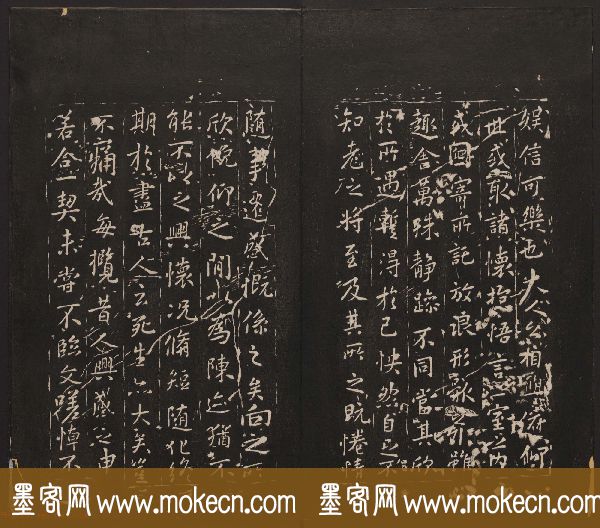 娛信可樂也夫人之相與俯仰
世或取諸懷抱悟言一室之內
或因寄所託放浪形骸之外雖
趣舍萬殊靜躁不同當其欣
於所遇暫得於己怏然自足不
知老之將至及其所之既惓情
隨事遷感慨係之矣向之所
欣俛仰之間以為陳迹猶不
能不以之興懷況脩短隨化終
期於盡古人云死生亦大矣豈
不痛哉每攬昔人興感之由
若合一契未嘗不臨文嗟悼不
墨客网 www.mokecn.com 墨客网 www.mokecn.com